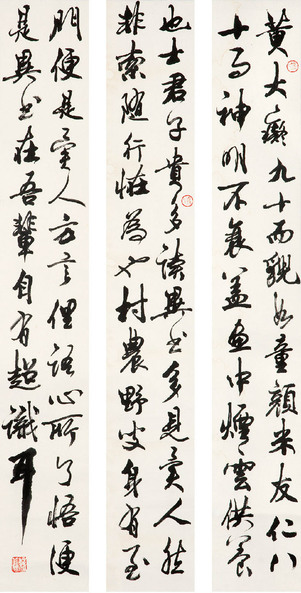 黄大癡九十而貌如童顔米友仁八
十神明不衰盖画中煙雲供養
也士君子貴多讀異書多見異人然
非索隨行怪為也村農野叟身有至
便是異人方言俚語心所了悟便
是異書在吾輩自有超識耳